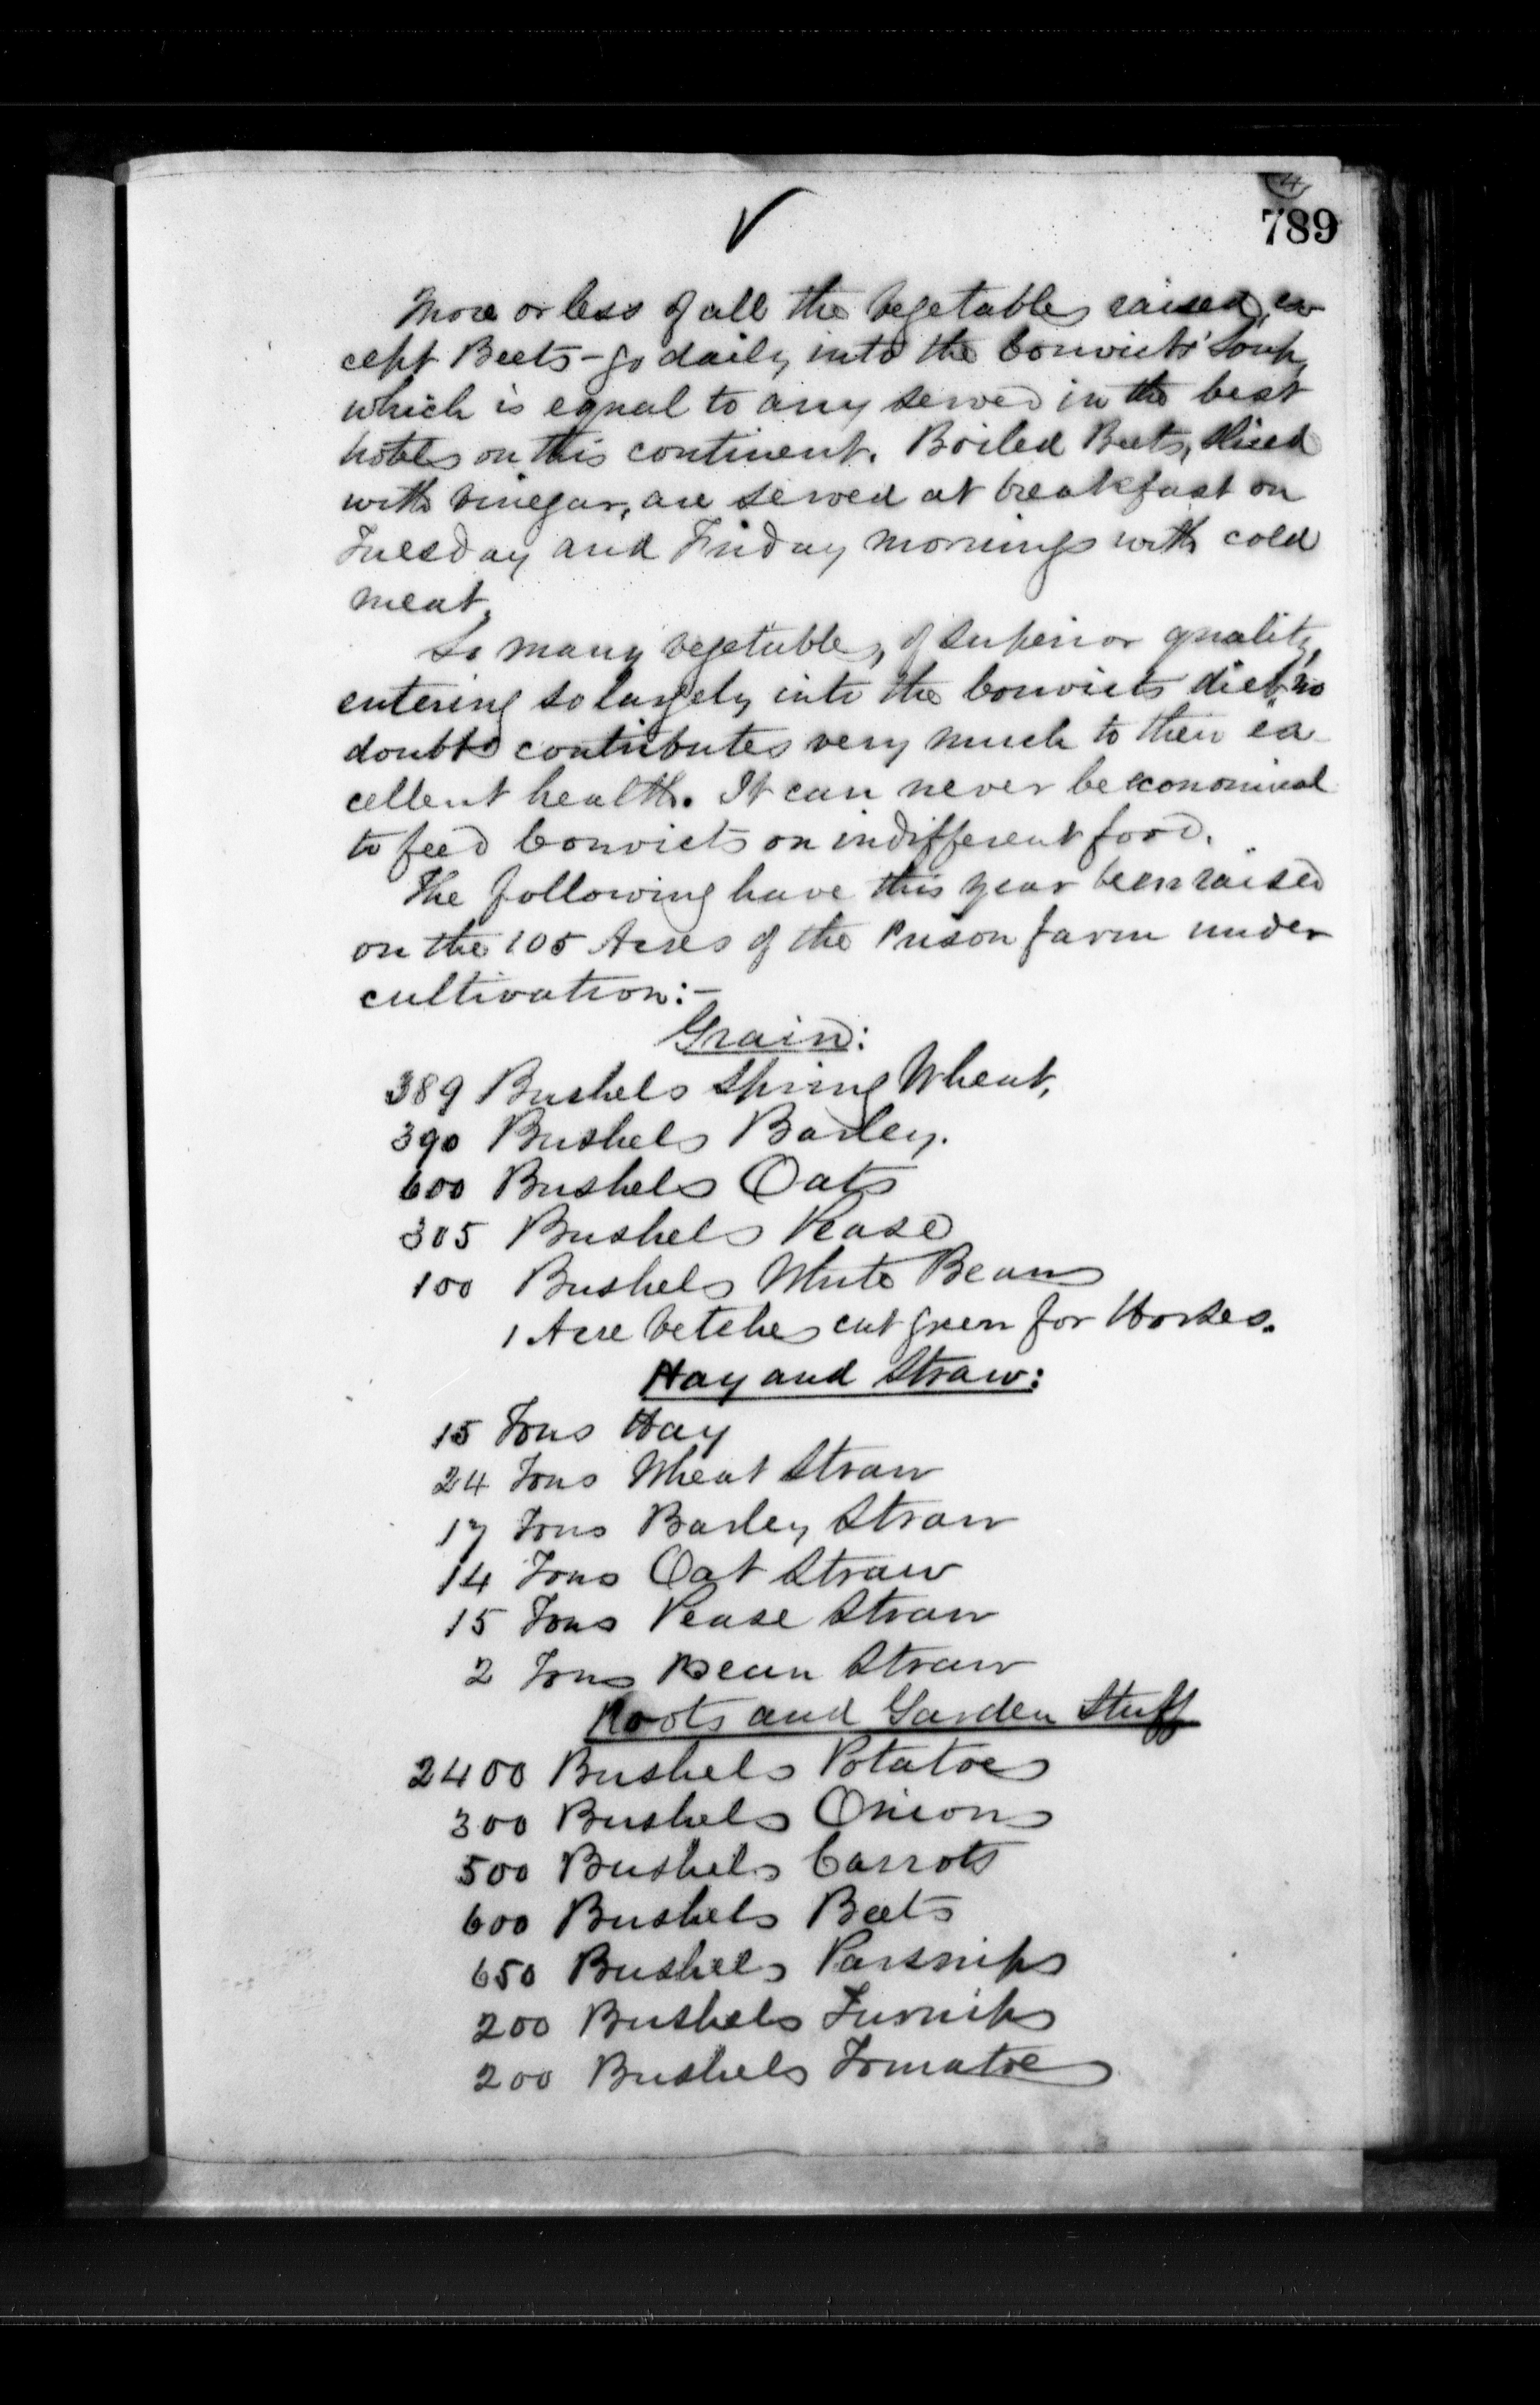 4
789
More or less of all the vegetables raised, ex
cept Beets - go daily into the Convicts' Soup,
which is equal to any served in the best
hotels on this continent. Boiled Beets, sliced
with vinegar, are served at breakfast on
Tuesday and Friday mornings with cold
meat.
So many vegetables, of superior quality,
entering so largely into the Convicts diet, no
doubt contributes very much to their ex
cellent health. It can never be economical
to feed Convicts on indifferent food.
The following have this year been raised
on the 105 Acres of the Prison farm under
cultivation:-
Grain:
389 Bushels Spring Wheat,
390 Bushels Barley.
600 Bushels Oats
305 Bushels Pease
100 Bushels White Beans
1 Acre Vetches cut green for Horses.
Hay and Straw:
15 Tons Hay
24 Tons Wheat Straw
17 Tons Barley Straw
14 Tons Oat Straw
15 Tons Pease Straw
2 Tons Bean Straw
Roots and Garden Stuff
2400 Bushels Potatoes
300 Bushels Onions
500 Bushels Carrots
600 Bushels Beets
650 Bushels Parsnips
200 Bushels Turnips
200 Bushels Tomatoes